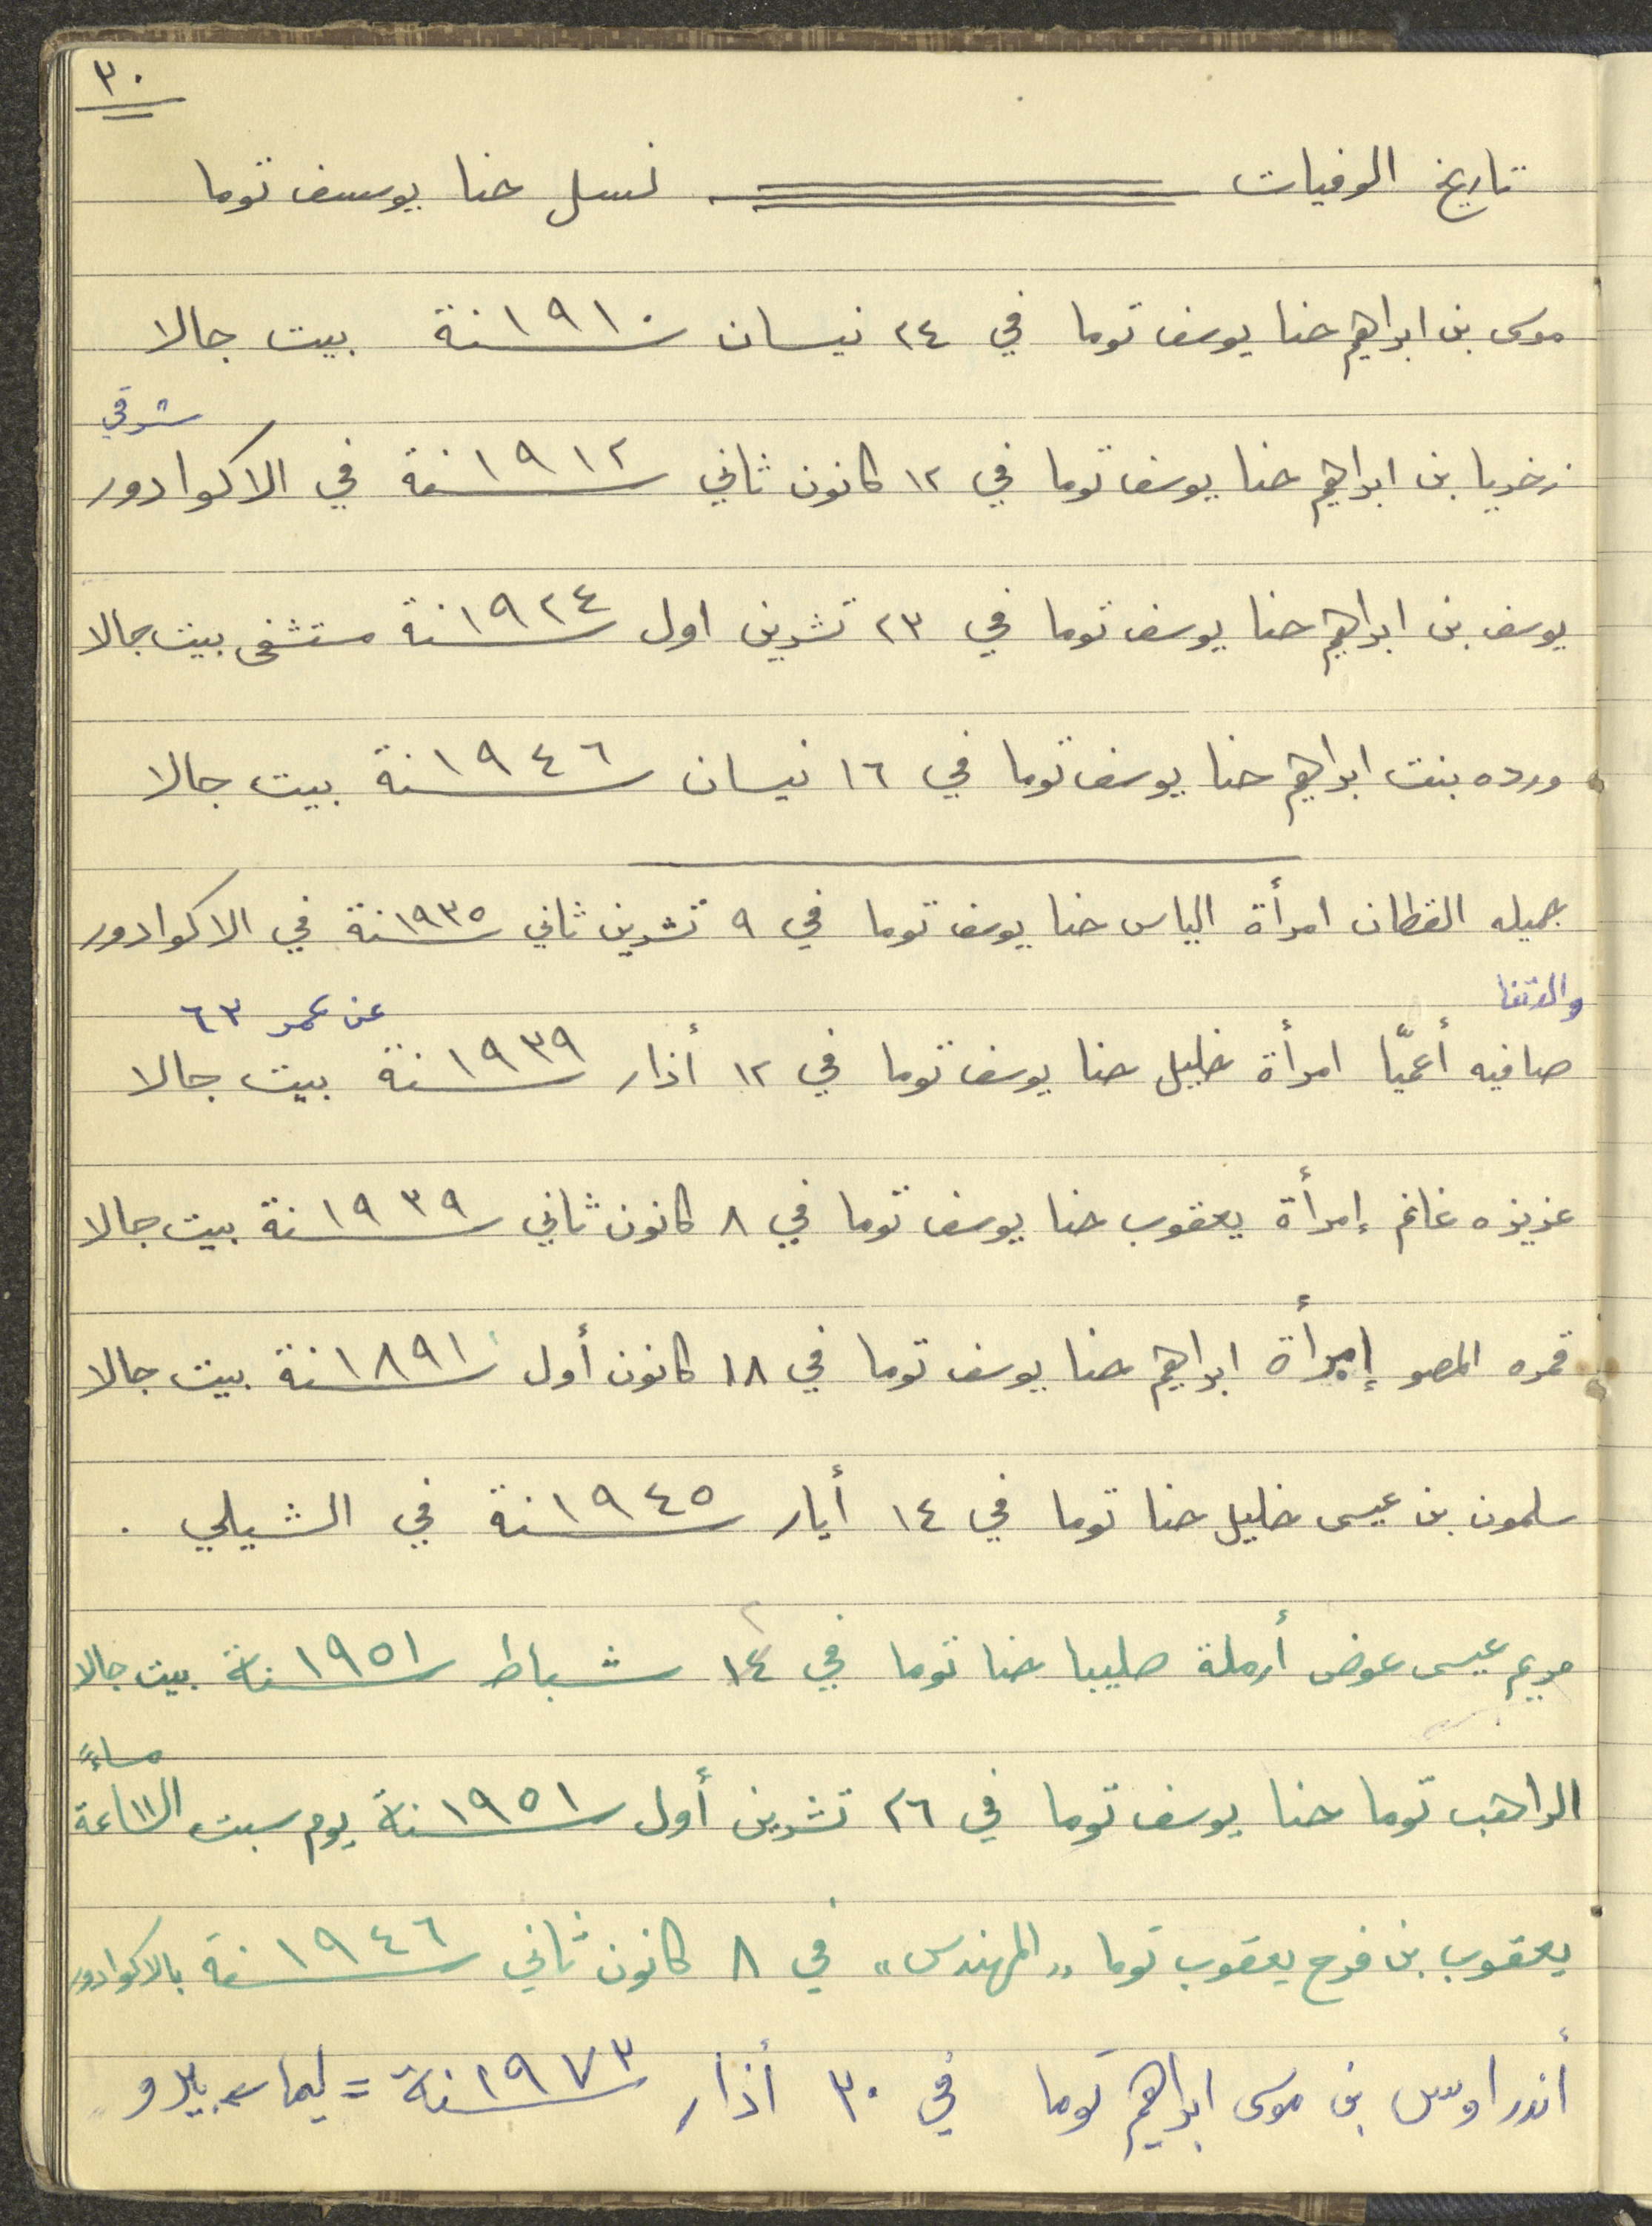 ٣٠
تاريخ الوفيات نسل حنا يوسف توما
موسى بن ابراهيم حنا يوسف توما في ٢٤ نيسان سنة ١٩١٠ بيت جالا
شرقي
زخريا بن ابراهيم حنا يوسف توما في ١٢ كانون ثاني سنة ١٩١٢ في الاكوادور
يوسف بن ابراهيم حنا يوسف توما في ٢٣ تشرين اول سنة ١٩٢٤ مستشفى بيت جالا
ورده بنت ابراهيم حنا يوسف توما في ١٦ نيسان سنة ١٩٤٦ بيت جالا
جميله القطان امرأة الياس حنا يوسف توما في ٩ تشرين ثاني سنة ١٩٣٥ في الاكوادور
والدتنا عن عمر ٦٣
صافيه أعميّا امرأة خليل حنا يوسف توما في ١٢ أذار سنة ١٩٣٩ بيت جالا
عزيزه غانم إمرأة يعقوب حنا يوسف توما في ٨ كانون ثاني سنة ١٩٣٩ بيت جالا
قمره المصو إمرأة ابراهيم حنا يوسف توما في ١٨ كانون أول سنة ١٨٩١ بيت جالا
سلمون بن عيسى خليل حنا توما في ١٤ أيار سنة ١٩٤٥ في الشيلي .
مريم عيسى عوض أرملة صليبا حنا توما في ١٤ شباط سنة ١٩٥١ بيت جالا
مساءً
الراهب توما حنا يوسف توما في ٢٦ تشرين أول سنة ١٩٥١ يوم سبت الساعة ١١
يعقوب بن فرح يعقوب توما "المهندس" في ٨ كانون ثاني سنة ١٩٤٦ بالاكوادور
أندراوس بن موسى ابراهيم توما في ٣٠ أذار سنة ١٩٧٣ = ليما - بيرو